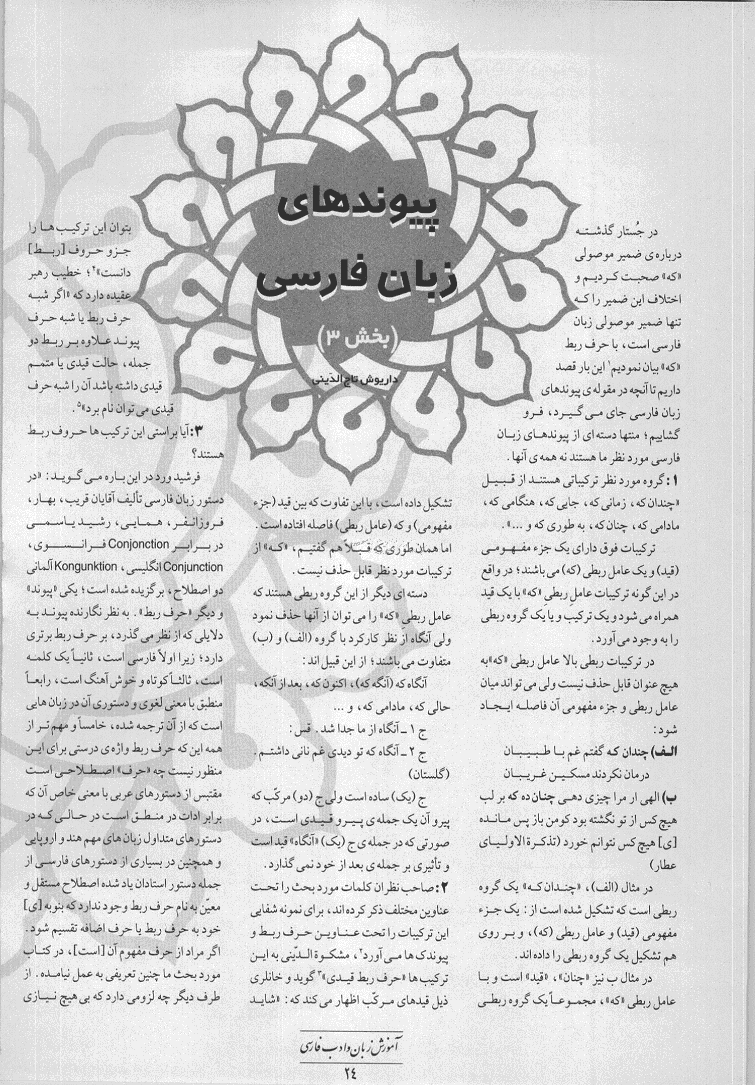 پیوندهای
زبان فارسی
(بخش ۳)
داریوش تاج‌الدّینی
در جُستار گذشته
درباره‌ی ضمیر موصولی
«که» صحبت کردیم و
اختلاف این ضمیر را که
تنها ضمیر موصولی زبان
فارسی است، با حرف ربط
«که» بیان نمودیم۱ این بار قصد
داریم تا آنچه در مقوله‌ی پیوندهای
زبان فارسی جای می‌گیرد، فرو
گشاییم؛ منتها دسته‌ای از پیوندهای زبان
فارسی مورد نظر ما هستند نه همه‌ی آنها.
۱: گروه مورد نظر ترکیباتی هستند از قبیل
«چندان که، زمانی که، جایی که، هنگامی که،
مادامی که، چنان که، به طوری که و ...».
ترکیبات فوق دارای یک جزء مفهومی
(قید) و یک عامل ربطی (که) می‌باشند؛ در واقع
در این گونه ترکیبات عامل ربطی «که» با یک قید
همراه می‌شود و یک ترکیب و یا یک گروه ربطی
را به وجود می‌آورد.
در ترکیبات ربطی بالا عامل ربطی «که» به
هیچ عنوان قابل حذف نیست ولی می‌تواند میان
عامل ربطی و جزء مفهومی آن فاصله ایجاد
شود:
الف) چندان که گفتم غم با طبیبان
درمان نکردند مسکین غریبان
ب) الهی ار مرا چیزی دهی چنان ده که بر لب
هیچ کس از تو نگشته بود کومن باز پس مانده
[ی] هیچ کس نتوانم خورد (تذکرة الاولیای
عطار)
در مثال (الف)، «چندان که» یک گروه
ربطی است که تشکیل شده است از: یک جزء
مفهومی (قید) و عامل ربطی (که)، و بر روی
هم تشکیل یک گروه ربطی را داده‌اند.
در مثال ب نیز «چنان»، «قید» است و با
عامل ربطی «که»، مجموعاً یک گروه ربطی
تشکیل داده است، با این تفاوت که بین قید (جزء
مفهومی) و که (عامل ربطی) فاصله افتاده است.
اما همان طوری که قبلاً هم گفتیم، «که» از
ترکیبات مورد نظر قابل حذف نیست.
دسته‌ای دیگر از این گروه ربطی هستند که
عامل ربطی «که» را می‌توان از آنها حذف نمود
ولی آنگاه از نظر کارکرد با گروه (الف) و (ب)
متفاوت می‌باشند؛ از این قبیل‌اند:
آنگاه که (آنگه که)، اکنون که، بعد از آنکه،
حالی که، مادامی که، و ...
ج ۱ـ آنگاه از ما جدا شد. قس:
ج ۲ـ آنگاه که تو دیدی غم نانی داشتم.
(گلستان)
ج (یک) ساده است ولی ج (دو) مرکّب که
پیرو آن یک جمله‌ی پیرو قیدی است، در
صورتی که در جمله‌ی ج (یک) «آنگاه» قید است
و تأثیری بر جمله‌ی بعد از خود نمی‌گذارد.
۲: صاحب نظران کلمات مورد بحث را تحت
عناوین مختلف ذکر کرده‌اند، برای نمونه شفایی
این ترکیبات را تحت عناوین حرف ربط و
پیوندک‌ها می‌آورد۲، مشکوة الدّینی به این
ترکیب‌ها «حرف ربط قیدی»۳ گوید و خانلری
ذیل قیدهای مرکّب اظهار می‌کند که: «شاید
بتوان این ترکیب‌ها را
جزو حروف [ربط]
دانست»۴؛ خطیب رهبر
عقیده دارد که «اگر شبه
حرف ربط یا شبه حرف
پیوند علاوه بر ربط دو
جمله، حالت قیدی یا متمم
قیدی داشته باشد آن را شبه حرف
قیدی می‌توان نام برد»۵.
۳: آیا براستی این ترکیب‌ها حروف ربط
هستند؟
فرشید ورد در این باره می‌گوید: «در
دستور زبان فارسی تألیف آقایان قریب، بهار،
فروزانفر، همایی، رشید یاسمی
در برابر Conjonction فرانسوی،
Conjunction انگلیسی، Kongunktion آلمانی
دو اصطلاح، برگزیده شده است؛ یکی «پیوند»
و دیگر «حرف ربط». به نظر نگارنده پیوند به
دلایلی که از نظر می‌گذرد، بر حرف ربط برتری
دارد؛ زیرا اولاً فارسی است، ثانیاً یک کلمه
است، ثالثاً کوتاه و خوش آهنگ است، رابعاً
منطبق با معنی لغوی و دستوری آن در زبان‌هایی
است که از آن ترجمه شده، خامساً و مهم‌تر از
همه این که حرف ربط واژه‌ی درستی برای این
منظور نیست چه «حرف» اصطلاحی است
مقتبس از دستورهای عربی با معنی خاص آن که
برابر ادات در منطق است در حالی که در
دستورهای متداول زبان‌های مهم هند و اروپایی
و همچنین در بسیاری از دستورهای فارسی از
جمله دستور استادان یاد شده اصطلاح مستقل و
معیّن به نام حرف ربط وجود ندارد که بنوبه [ی]
خود به حرف ربط یا حرف اضافه تقسیم شود.
اگر مراد از حرف مفهوم آن [است]، در کتاب
مورد بحث ما چنین تعریفی به عمل نیامده. از
طرف دیگر چه لزومی دارد که بی هیچ نیازی
آموزش زبان و ادب فارسی
۲٤